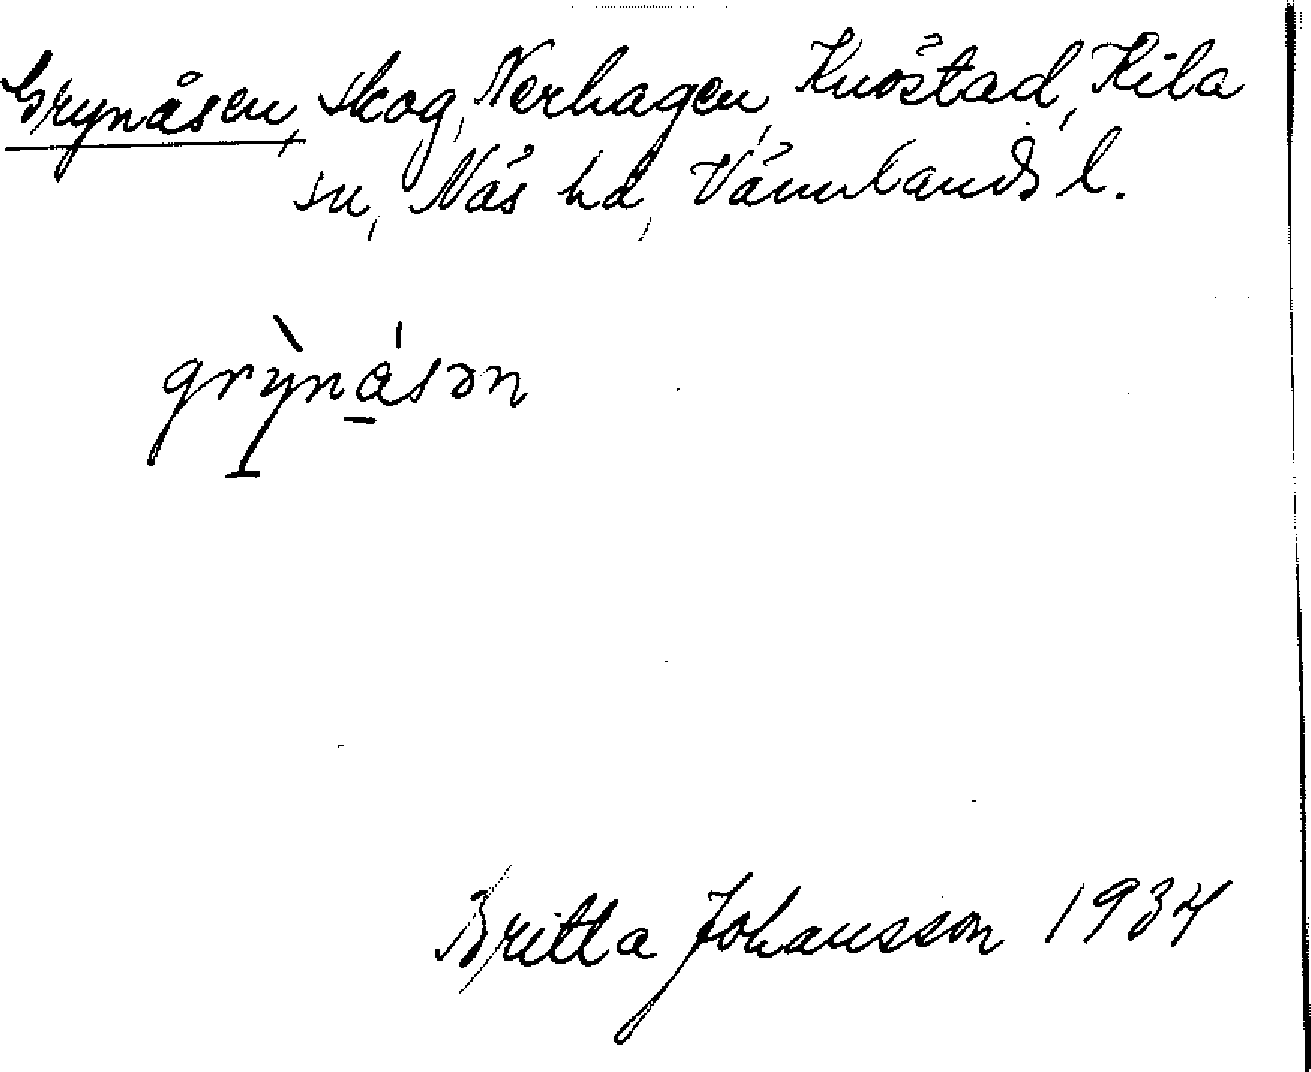 Grynåsen, skog, Nerhagen, Knöstad, Kila
sn, Näs hd, Värmlands l.
grỳnåsən
Britta Johansson 1934